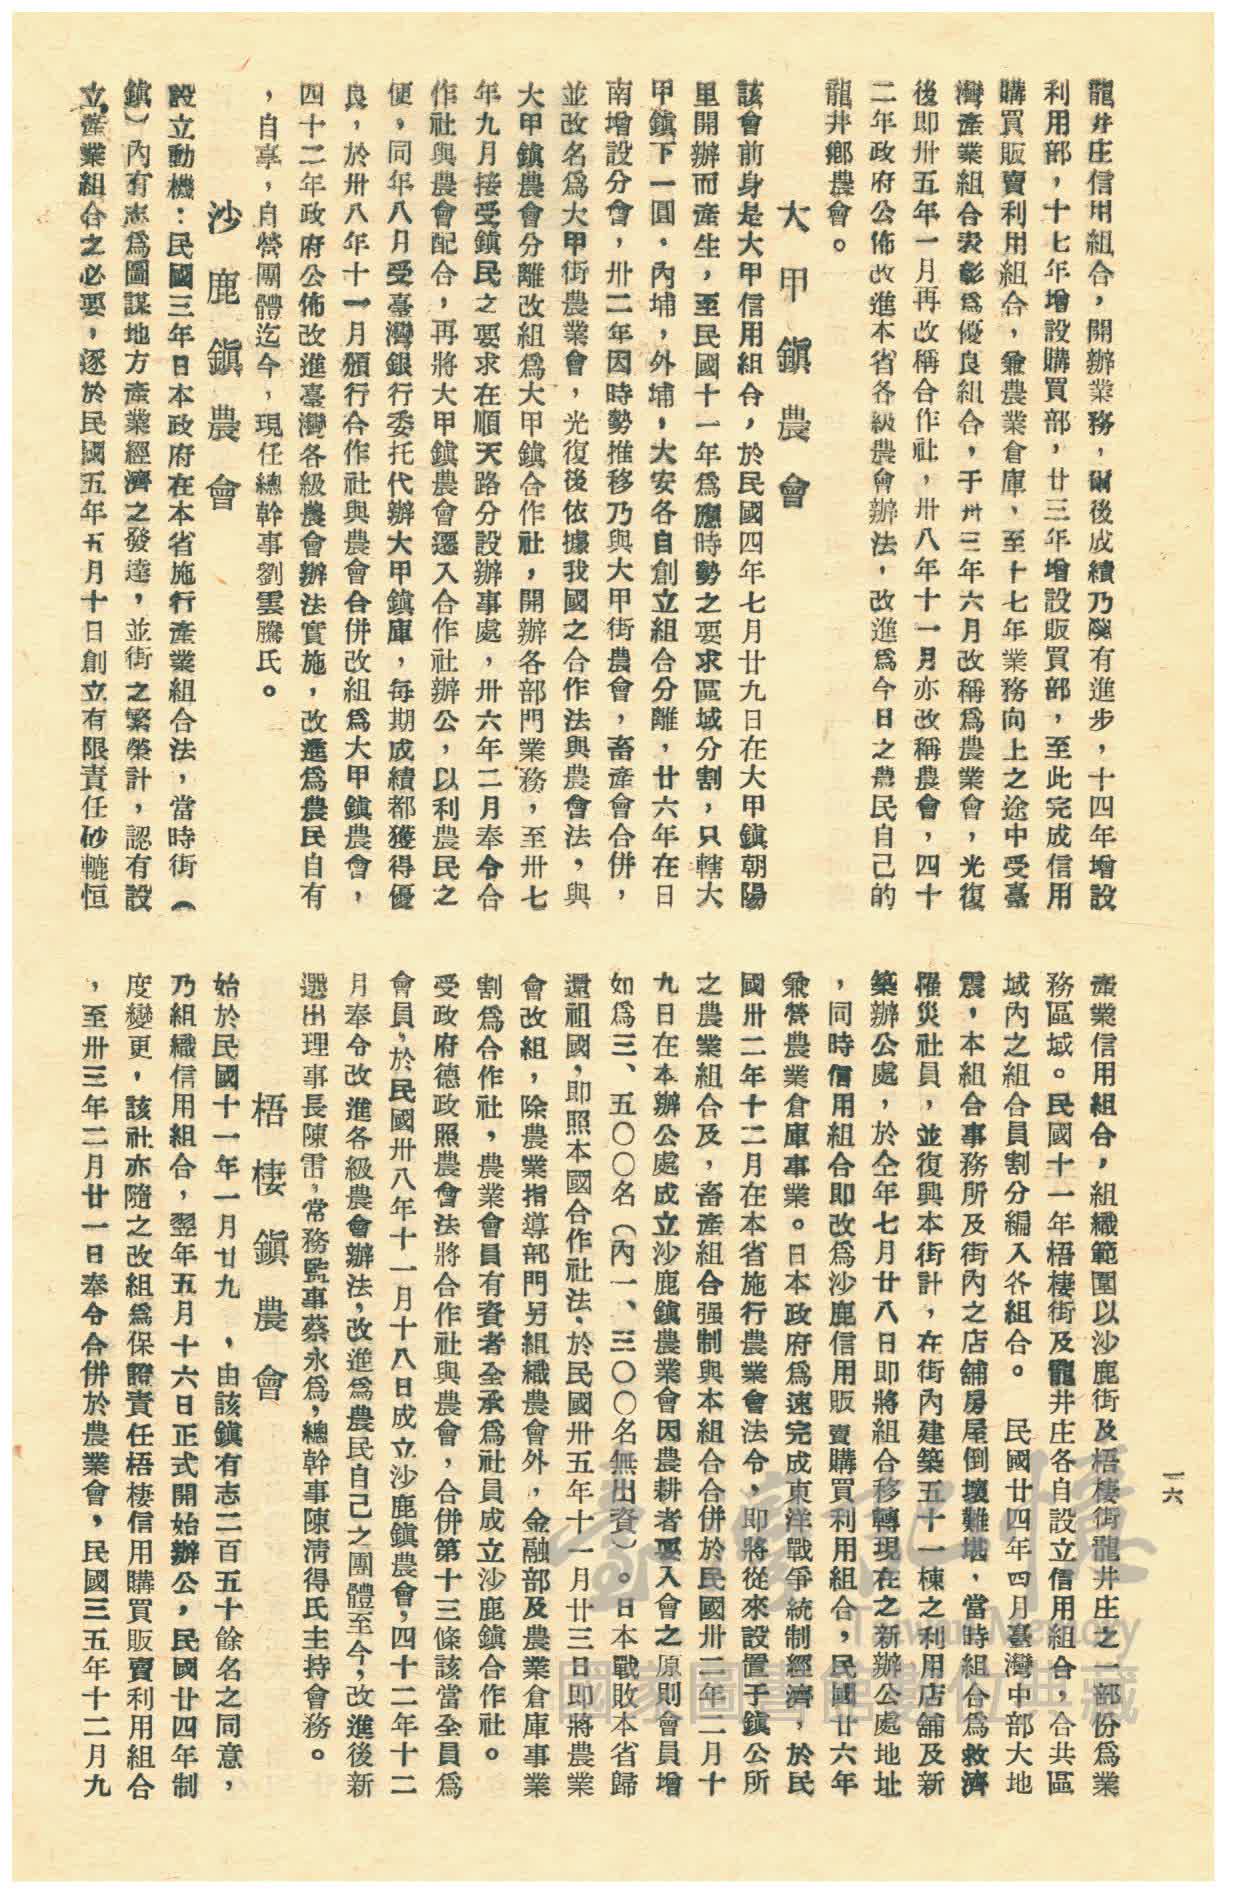 龍井庄信用組合，開辦業務，爾後成績乃陝有進步，十四年增設
利用部，十七年增設購買部，廿三年增設販買部，至此完成信用
購買販賣利用組合，兼農業倉庫，至十七年業務向上之途中受臺
灣產業組合表彰爲優良組合，于卅三年六月改稱爲農業會，光復
後即卅五年一月再改稱合作社，卅八年十一月亦改稱農會，四十
二年政府公佈改進本省各級農會辦法，改進爲今日之農民自己的
龍井鄉農會。
大甲鎭農會
該會前身是大甲信用組合，於民國四年七月廿九日在大甲鎭朝陽
里開辦而產生，至民國十一年爲應時勢之要求區域分割，只轄大
甲鎭下一圓，內埔，外埔，大安各自創立組合分離，廿六年在日
南增設分會，卅二年因時勢推移乃與大甲街農會，畜產會合併，
並改名爲大甲街農業會，光復後依據我國之合作法與農會法，與
大甲鎭農會分離改組爲大甲鎭合作社，開辦各部門業務，至卅七
年九月接受鎭民之要求在順天路分設辦事處，卅六年二月奉令合
作社與農會配合，再將大甲鎭農會遷入合作社辦公，以利農民之
便，同年八月受臺灣銀行委托代辦大甲鎭庫，每期成績都獲得優
良，於卅八年十一月頒行合作社與農會合併改組爲大甲鎭農會，
四十二年政府公佈改進臺灣各級農會辦法實施，改進爲農民自有
，自享，自營團體迄今，現任總幹事劉雲騰氏。
沙鹿鎭農會
設立動機：民國三年日本政府在本省施行產業組合法，當時街（
鎭）內有志爲圖謀地方產業經濟之發達，並街之繁榮計，認有設
立產業組合之必要，逐於民國五年五月十日創立有限責任砂轆恒
產業信用組合，組織範圍以沙鹿街及梧棲街龍井庄之一部份爲業
務區域。民國十一年梧棲街及龍井庄各自設立信用組合，合共區
域內之組合員割分編入各組合。 民國廿四年四月臺灣中部大地
震，本組合事務所及街內之店舖房屋倒壞難堪，當時組合爲救濟
罹災社員，並復興本街計，在街內建築五十一棟之利用店舖及新
築辦公處，於仝年七月廿八日即將組合移轉現在之新辦公處地址
，同時信用組合即改爲沙鹿信用販賣購買利用組合，民國廿六年
兼營農業倉庫事業。日本政府爲速完成東洋戰爭統制經濟，於民
國卅二年十二月在本省施行農業會法令，即將從來設置于鎭公所
之農業組合及，畜產組合强制與本組合合併於民國卅二年二月十
九日在本辦公處成立沙鹿鎭農業會因農耕者要入會之原則會員增
如爲三、五〇〇名（內一、三〇〇名無出資）。日本戰敗本省歸
還祖國，即照本國合作社法，於民國卅五年十一月廿三日即將農業
會改組，除農業指導部門另組織農會外，金融部及農業倉庫事業
割爲合作社，農業會員有資者全承爲社員成立沙鹿鎭合作社。
受政府德政照農會法將合作社與農會，合併第十三條該當全員爲
會員，於民國卅八年十一月十八日成立沙鹿鎭農會，四十二年十二
月奉令改進各級農會辦法，改進爲農民自己之團體至今，改進後新
選出理事長陳雷，常務監事蔡永爲，總幹事陳淸得氏主持會務。
梧棲鎭農會
始於民國十一年一月廿九，由該鎭有志二百五十餘名之同意，
乃組織信用組合，翌年五月十六日正式開始辦公，民國廿四年制
度變更，該社亦隨之改組爲保證責任梧棲信用購買販賣利用組合
，至卅三年二月廿一日奉令合併於農業會，民國三五年十二月九
一六
臺灣記憶
Taiwan Memory
國家圖書館數位典藏